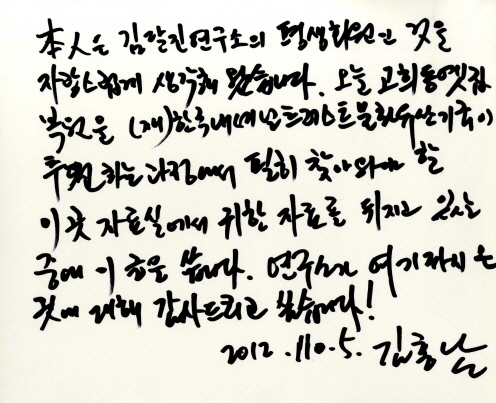 本人은 김달진연구소의 평생회원인 것을
자랑스럽게 생각해 왔습니다. 오늘 고희동옛집
복원을 (재)한국내셔널트러스트문화유산기금이
추진하는 과정에서 필히 찾아와야 할
이 곳 자료실에서 귀한 자료를 뒤지고 있는
중에 이 글을 씁니다. 연구소가 여기까지 온
것에 대해 감사드리고 싶습니다!
2012. 10. 5. 김홍남